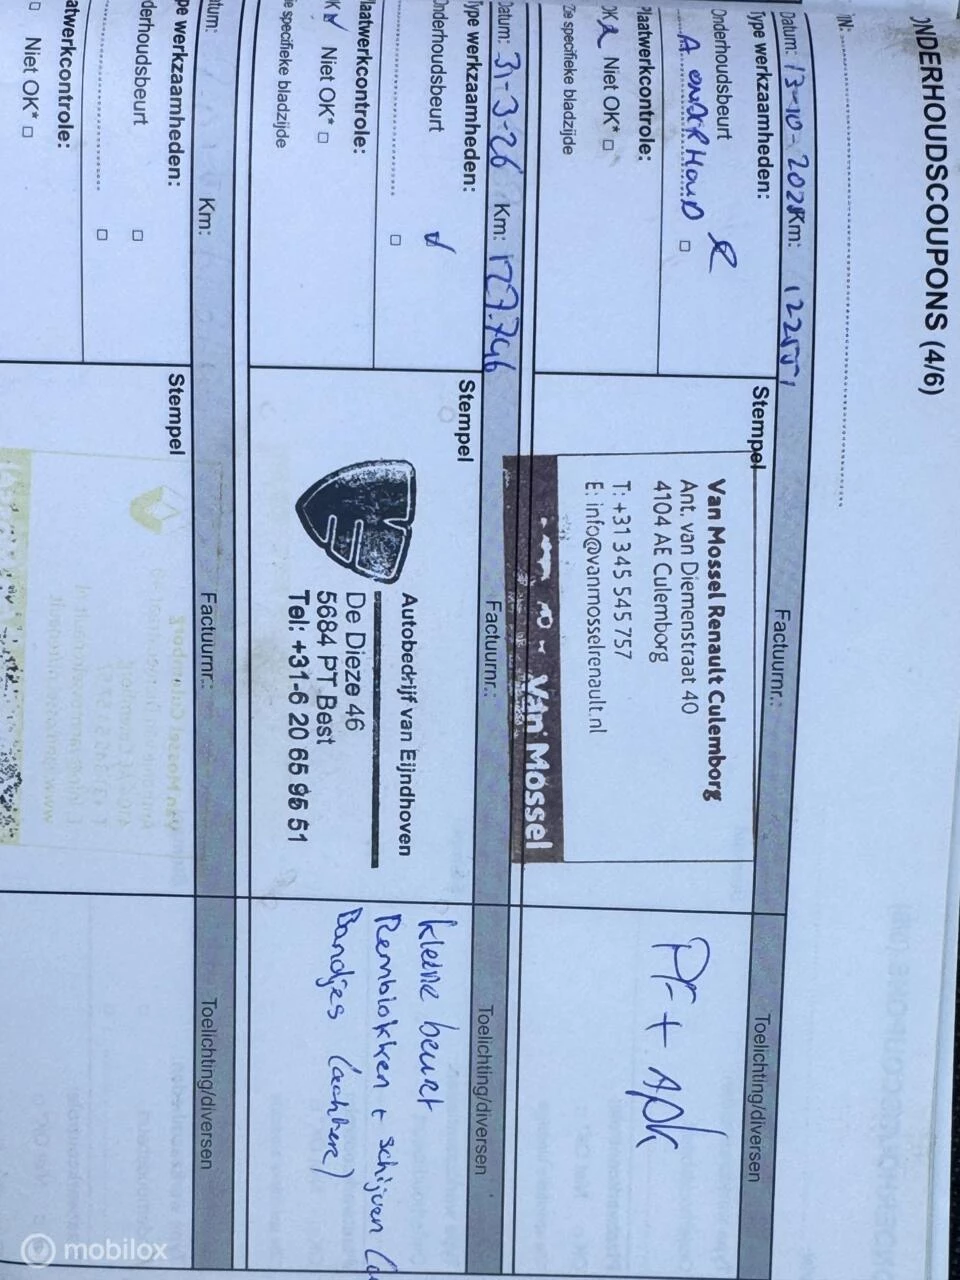 ONDERHOUDSCOUPONS (4/6)
Datum: 13-10-2025 Km: 122551
Factuurnr.:
Toelichting/diversen
Type werkzaamheden:
Onderhoudsbeurt
A ONDERHOUD
Plaatwerkcontrole:
OK Niet OK*
Zie specifieke bladzijde
Stempel
Van Mossel Renault Culemborg
Ant. van Diemenstraat 40
4104 AE Culemborg
T: +31 345 545 757
E: info@vanmosselrenault.nl
Van Mossel
Pf + APK
Datum: 31-3-26 Km: 127.746
Factuurnr.:
Toelichting/diversen
Type werkzaamheden:
Onderhoudsbeurt
Plaatwerkcontrole:
OK Niet OK*
Zie specifieke bladzijde
Stempel
Autobedrijf van Eijndhoven
De Dieze 46
5684 PT Best
Tel: +31-6 20 65 95 51
kleine beurt
Remblokken + schijven
Bandjes (achtere)
Datum: Km:
Factuurnr.:
Toelichting/diversen
Type werkzaamheden:
Onderhoudsbeurt
Plaatwerkcontrole:
Niet OK*
Stempel
mobilox